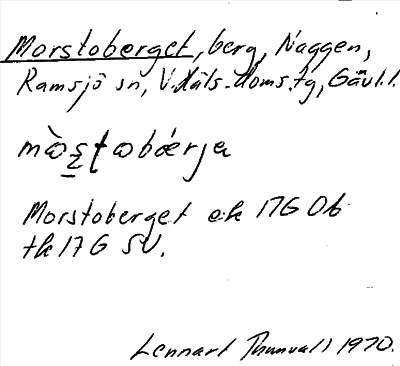 Morstoberget, berg, Naggen,
Ramsjö sn, V. Häls. doms. tg, Gävl. l.
mὼs̱ʈɷbǽrja
Morstoberget ek 17G 0b
tk 17 G SV.
Lennart Thunvall 1970.